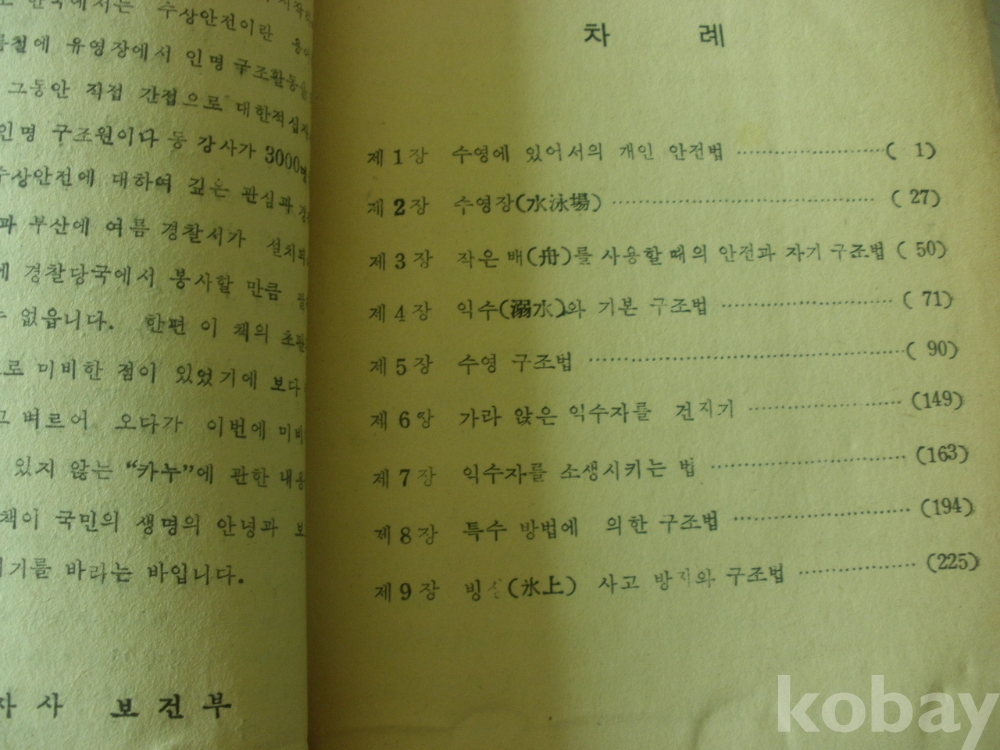 한국에서는 수상안전이란
유영장에서 인명 구조활동을
그동안 직접 간접으로 대한적십자
인명 구조원이다 등 강사가 3000명
수상안전에 대하여 깊은 관심과
부산에 여름 경찰서가 설치
경찰당국에서 봉사할 만큼
없읍니다. 한편 이 책의 초판
로 미비한 점이 있었기에 보다
벼르어 오다가 이번에 미비
있지 않는 “카누”에 관한 내용
책이 국민의 생명의 안녕과 보
기를 바라는 바입니다.
자사 보건부
차 례
제 1 장 수영에 있어서의 개인 안전법 ( 1)
제 2 장 수영장(水泳場) ( 27)
제 3 장 작은 배(舟)를 사용할 때의 안전과 자기 구조법 ( 50)
제 4 장 익수(溺水)와 기본 구조법 ( 71)
제 5 장 수영 구조법 ( 90)
제 6 장 가라 앉은 익수자를 건지기 (149)
제 7 장 익수자를 소생시키는 법 (163)
제 8 장 특수 방법에 의한 구조법 (194)
제 9 장 빙상(氷上) 사고 방지와 구조법 (225)
kobay